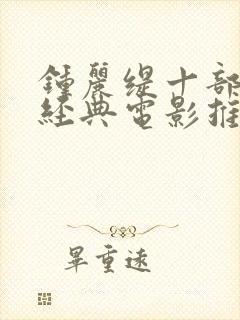 鍾麗緹十部
經典電影推
畢重遠